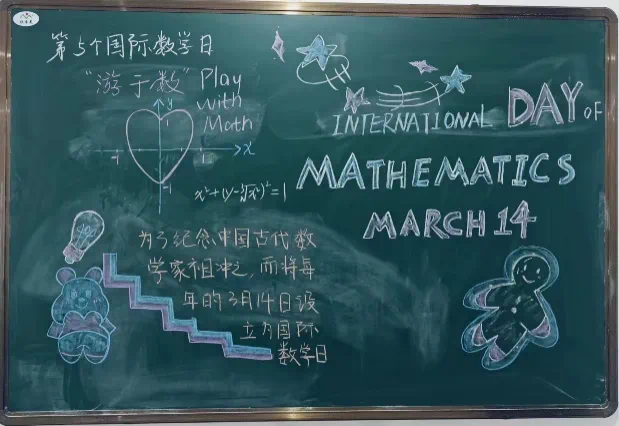 第5个国际数学日
"游于数"
Play
with
Math
y
x
-1
1
-1
x²+(y-∛x²)²=1
INTERNATIONAL DAY OF
MATHEMATICS
MARCH 14
为了纪念中国古代数
学家祖冲之,而将每
年的3月14日设
立为国际
数学日